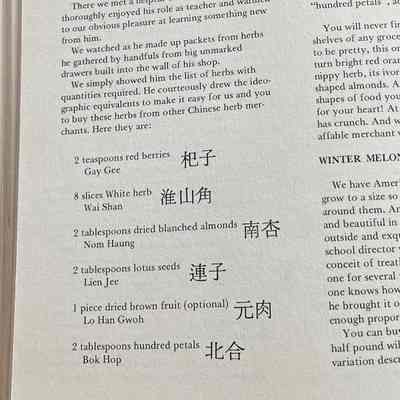 There we met a helpful
thoroughly enjoyed his role as teacher and warmed
to our obvious pleasure at learning something new
from him.
We watched as he made up packets from herbs
he gathered by handfuls from big unmarked
drawers built into the wall of his shop.
We simply showed him the list of herbs with
quantities required. He courteously drew the ideo-
graphic equivalents to make it easy for us and you
to buy these herbs from other Chinese herb mer-
chants. Here they are:
2 teaspoons red berries 杞子
Gay Gee
8 slices White herb 淮山角
Wai Shan
2 tablespoons dried blanched almonds 南杏
Nom Haung
2 tablespoons lotus seeds 連子
Lien Jee
1 piece dried brown fruit (optional) 元肉
Lo Han Gwoh
2 tablespoons hundred petals 北合
Bok Hop
"hundred petals",
You will never fin
shelves of any groce
to be pretty, this on
turn bright red oran
nippy herb, its ivor
shaped almonds. A
shapes of food you
for your heart! At
has crunch. And w
affable merchant
WINTER MELON
We have Ameri
grow to a size so
around them. An
and beautiful in
outside and exqu
school director
conceit of treati
one for several
one knows how
he brought it o
enough propor
You can buy
half pound wil
variation descr